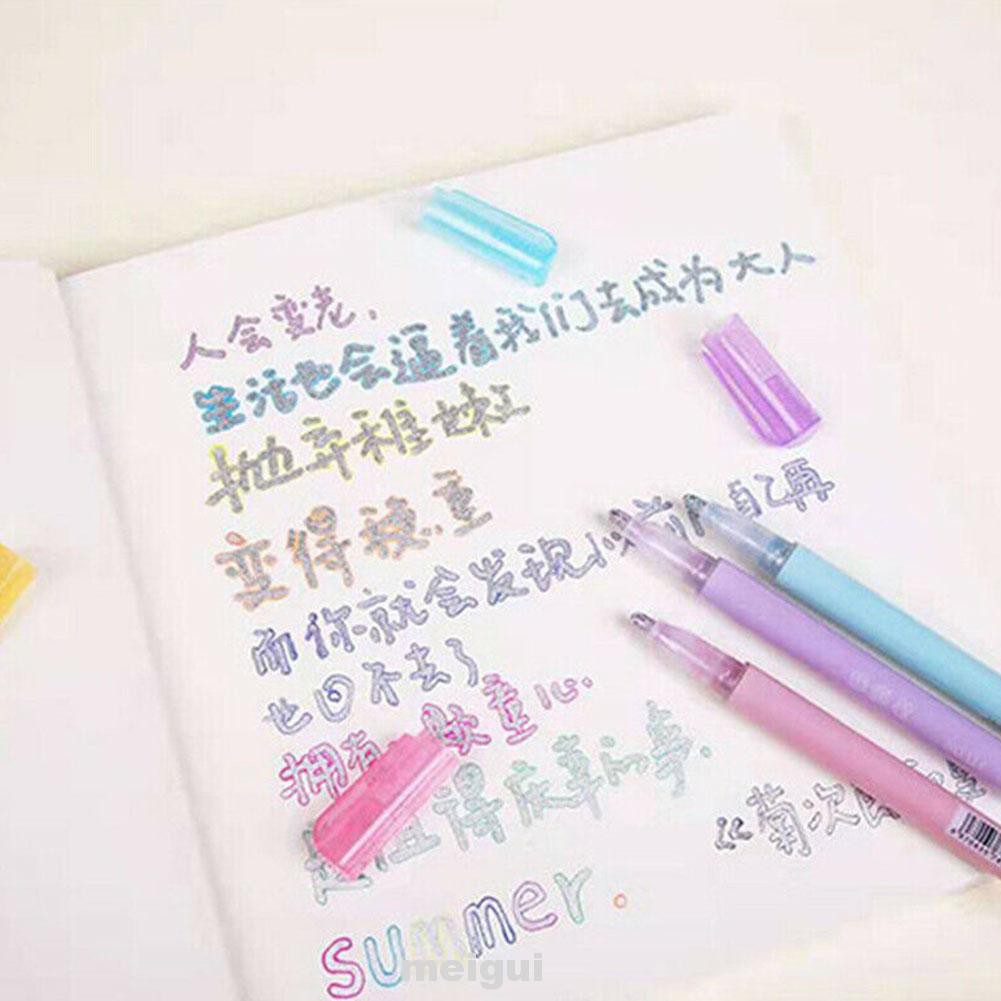 人会变老,
生活也会逼着我们去成为大人
抛弃稚嫩
变得稳重
而你就会发现以前 自己再
也回不去了
拥有 童心.
值得庆幸的事.
《菊次郎
summer.
meigui